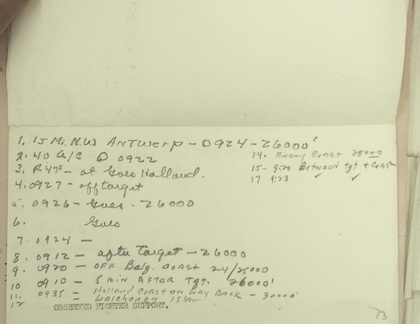 1. 15 Mi. N.W. ANTWERP - 0924 - 26000'
2. 40 A/C @ 0922
3. P.47s - at Goes Holland.
4. 0927 - off target
5. 0926 - Goes - 26000
6. Goes
7. 0924 -
8. 0912 - after Target - 26000
9. 0920 - OFF Belg. coast 24/25000
10 0910 - 5 min AFTER TGT. 26000'
11. 0935 - Holland Coast on way Back - 30000'
12
OBSERVED FIGHTER SUPPORT.
14. Enemy Coast 25000
15 - Between tgt + Coast
17
73